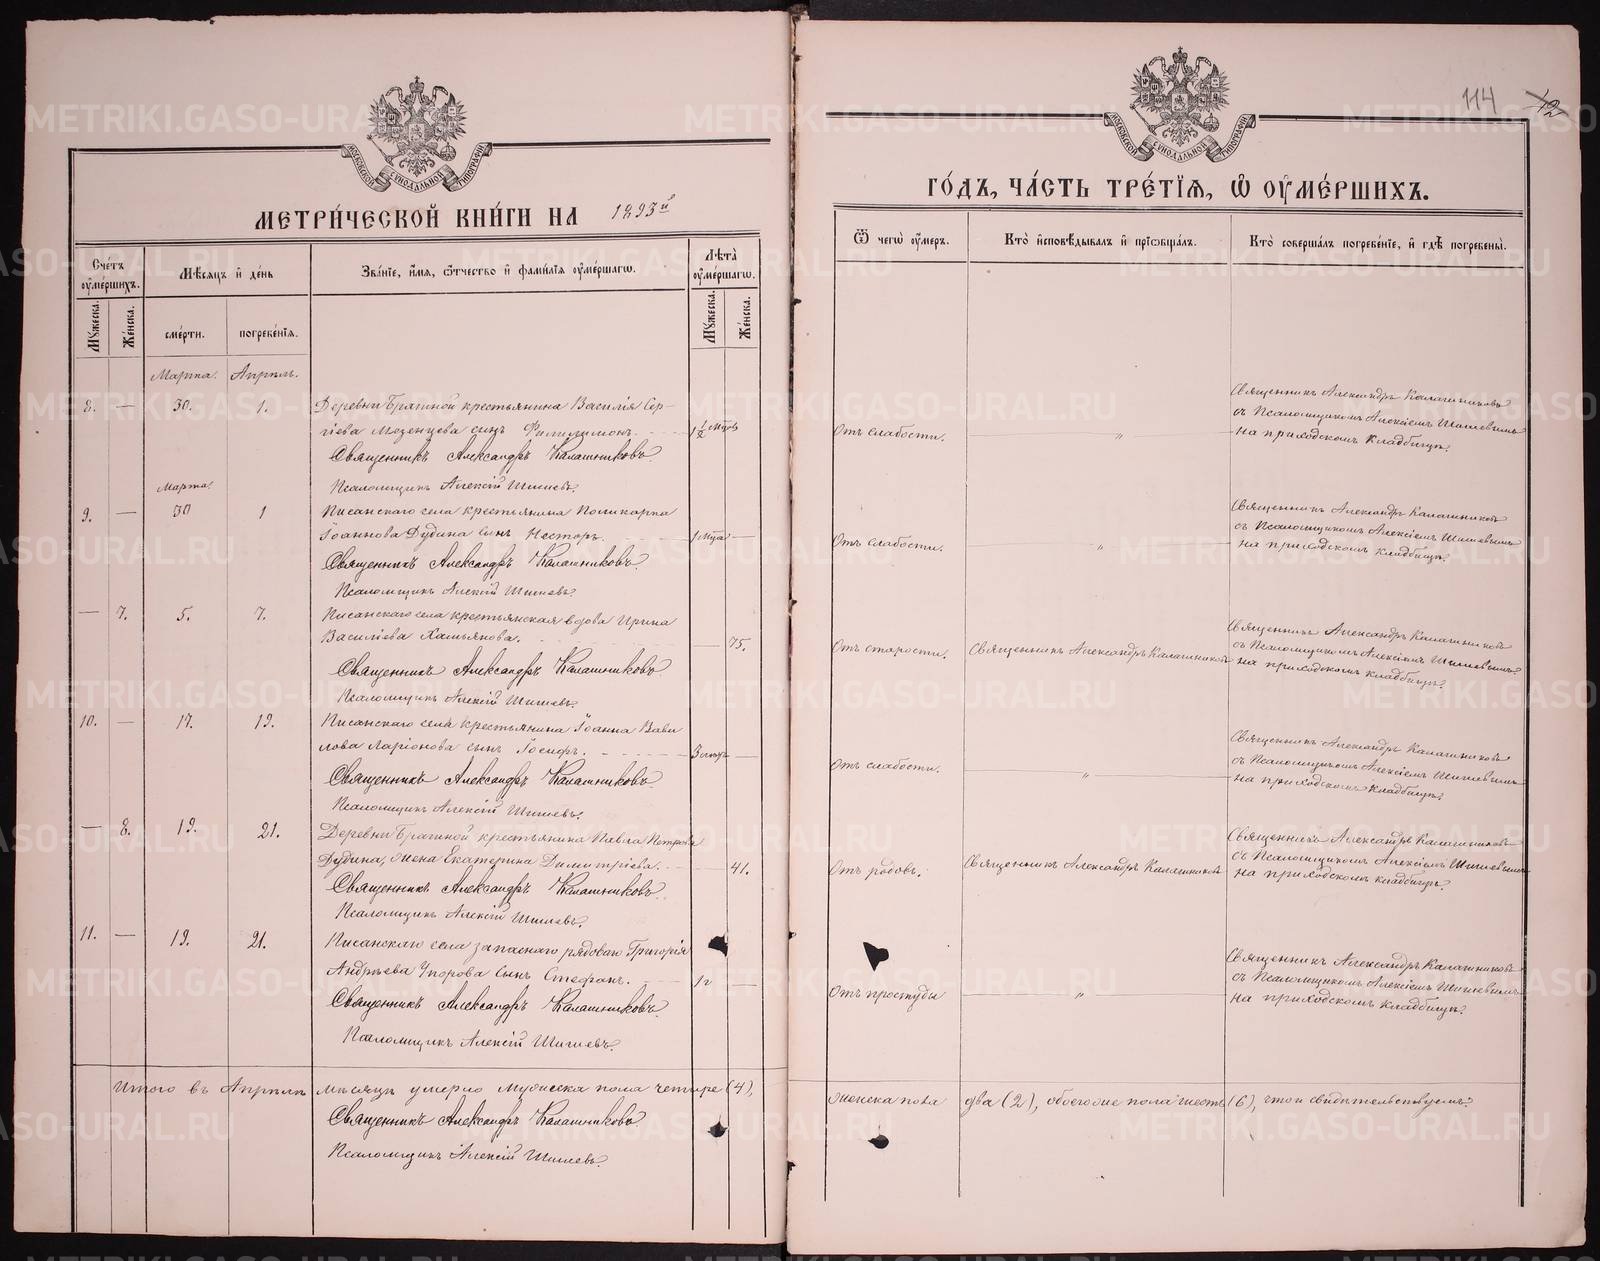 МЕТРИЧЕСКОЙ КНИГИ НА 1893й
ГОДЪ, ЧАСТЬ ТРЕТІЯ, Ѿ ОУМЕРШИХЪ.
114
12
МОСКОВСКОЙ СѴНОДАЛЬНОЙ ТИПОГРАФІИ
МОСКОВСКОЙ СѴНОДАЛЬНОЙ ТИПОГРАФІИ
Счетъ оумершихъ.
Мѣсяцъ и день
Званіе, имя, отчество и фамилія оумершагω.
Лѣта оумершагω.
Мужеска.
Женска.
смерти.
погребенія.
Мужеска.
Женска.
Ѿ чегω оумеръ.
Кто исповѣдывалъ и пріобщалъ.
Кто совершалъ погребеніе, и гдѣ погребены.
Марта. Апрѣль.
8. — 30. 1. Деревни Брагиной крестьянина Василія Сер-
гіева Мезенцева сынъ Филимонъ. 1½ мцовъ
Отъ слабости. „
Священникъ Александръ Калашниковъ
съ Псаломщикомъ Алексіемъ Шишевымъ
на приходскомъ кладбищѣ.
Священникъ Александръ Калашниковъ.
Псаломщикъ Алексій Шишевъ.
Марта.
9. — 30 1 Писанскаго села крестьянина Поликарпа
Іоаннова Дудина сынъ Несторъ. 1 мца —
Отъ слабости. „
Священникъ Александръ Калашниковъ
съ Псаломщикомъ Алексіемъ Шишевымъ
на приходскомъ кладбищѣ.
Священникъ Александръ Калашниковъ.
Псаломщикъ Алексій Шишевъ.
— 7. 5. 7. Писанскаго села крестьянская вдова Ирина
Василіева Хамьянова. — 75.
Отъ старости. Священникъ Александръ Калашниковъ
Священникъ Александръ Калашниковъ
съ Псаломщикомъ Алексіемъ Шишевымъ
на приходскомъ кладбищѣ.
Священникъ Александръ Калашниковъ
Псаломщикъ Алексій Шишевъ.
10. — 17. 19. Писанскаго села крестьянина Іоанна Вави
лова Ларіонова сынъ Іосифъ. 3 —
Отъ слабости. „
Священникъ Александръ Калашниковъ
съ Псаломщикомъ Алексіемъ Шишевымъ
на приходскомъ кладбищѣ.
Священникъ Александръ Калашниковъ
Псаломщикъ Алексій Шишевъ.
— 8. 19. 21. Деревни Брагиной крестьянина Павла Петрова
Дудина, жена Екатерина Димитріева. 41.
Отъ родовъ. Священникъ Александръ Калашниковъ
Священникъ Александръ Калашниковъ
съ Псаломщикомъ Алексіемъ Шишевымъ
на приходскомъ кладбищѣ.
Священникъ Александръ Калашниковъ.
Псаломщикъ Алексій Шишевъ.
11. — 19. 21. Писанскаго села запаснаго рядоваго Григорія
Андреева Упорова сынъ Стефанъ. 1 г —
Отъ простуды „
Священникъ Александръ Калашниковъ
съ Псаломщикомъ Алексіемъ Шишевымъ
на приходскомъ кладбищѣ.
Священникъ Александръ Калашниковъ.
Псаломщикъ Алексій Шишевъ.
Итого въ Апрѣлѣ мѣсяцѣ умерло мужеска пола четыре (4),
женска пола два (2), обоегоже пола шесть (6), что и свидѣтельствуемъ:
Священникъ Александръ Калашниковъ
Псаломщикъ Алексій Шишевъ.
METRIKI.GASO-URAL.RU